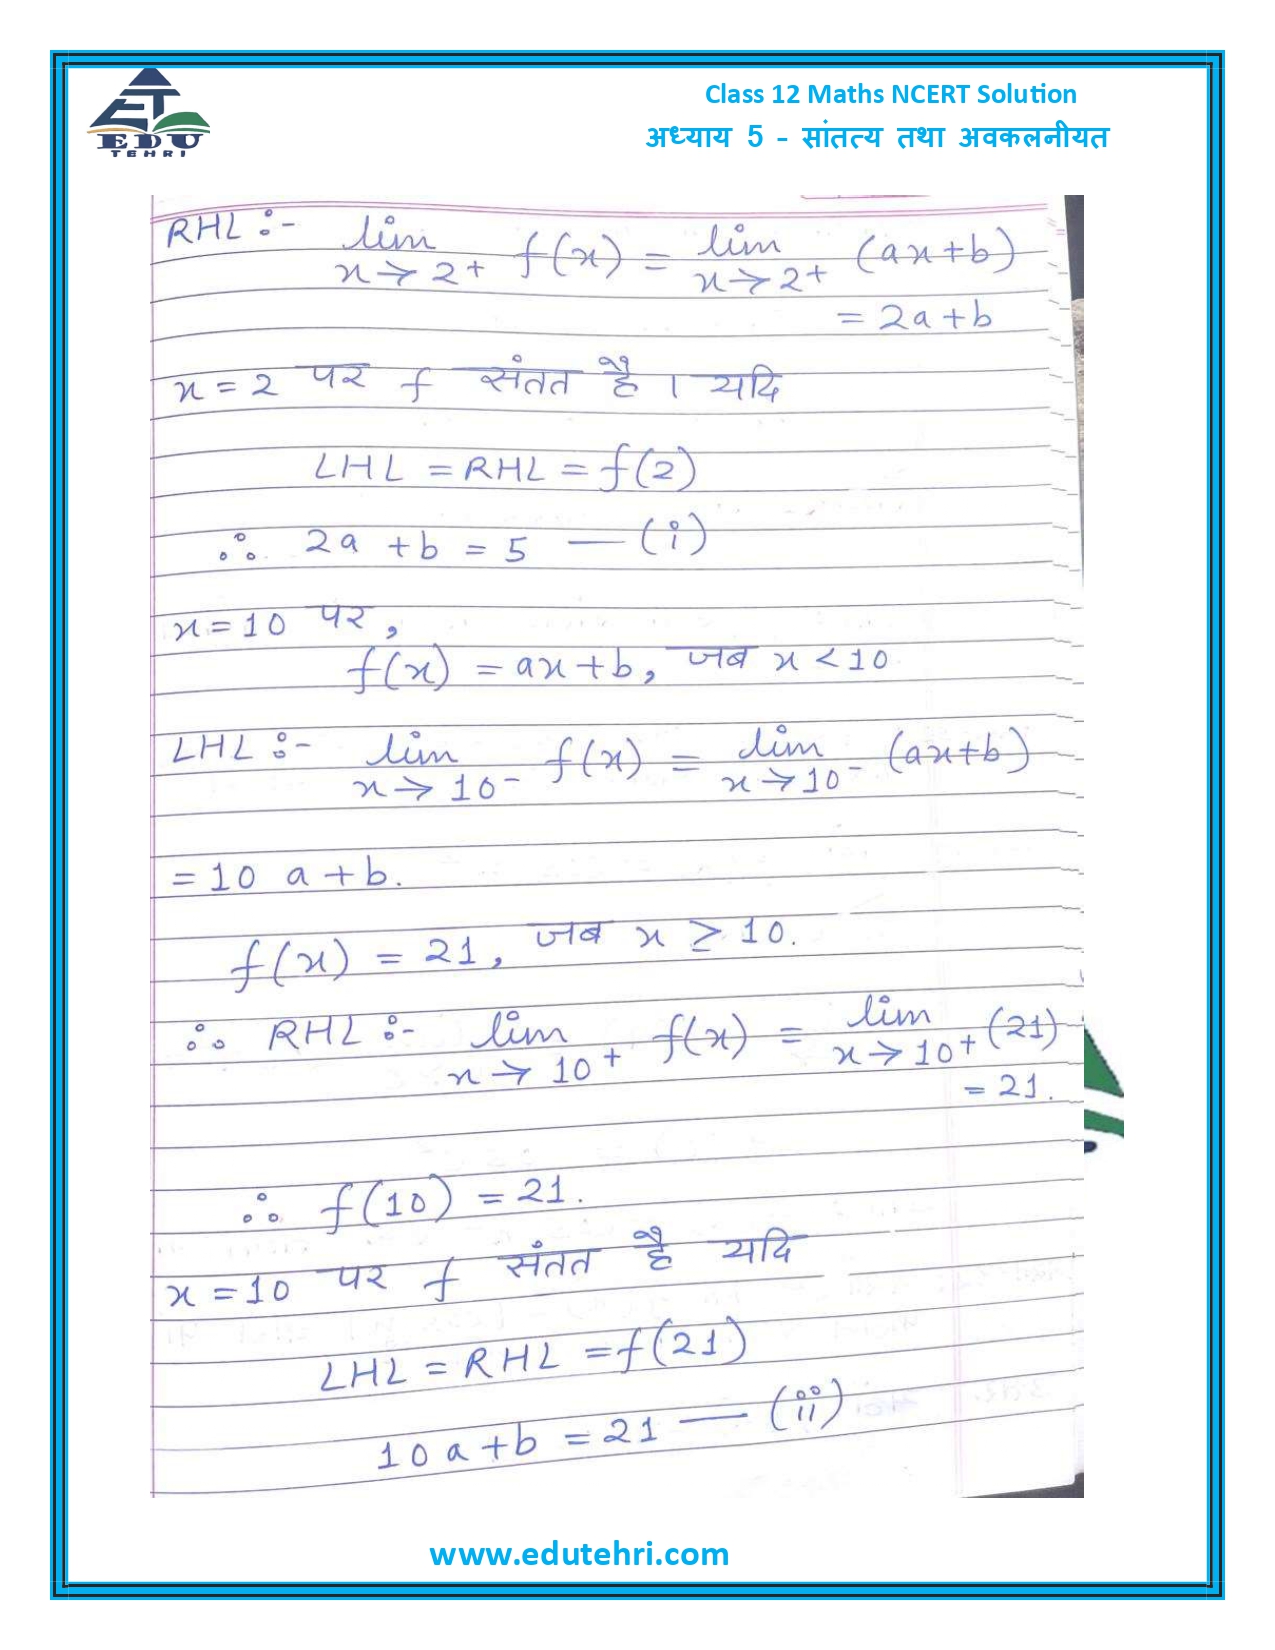 EDU
TEHRI
Class 12 Maths NCERT Solution
अध्याय 5 - सांतत्य तथा अवकलनीयत
RHL :- lim x→2+ f(x) = lim x→2+ (ax+b)
= 2a+b
x=2 पर f संतत है । यदि
LHL = RHL = f(2)
∴ 2a +b = 5 — (i)
x=10 पर,
f(x) = ax+b, जब x < 10
LHL :- lim x→10- f(x) = lim x→10- (ax+b)
= 10 a+b.
f(x) = 21, जब x ≥ 10.
∴ RHL :- lim x→10+ f(x) = lim x→10+ (21)
= 21.
∴ f(10) = 21.
x=10 पर f संतत है यदि
LHL = RHL = f(21)
10a+b = 21 — (ii)
www.edutehri.com